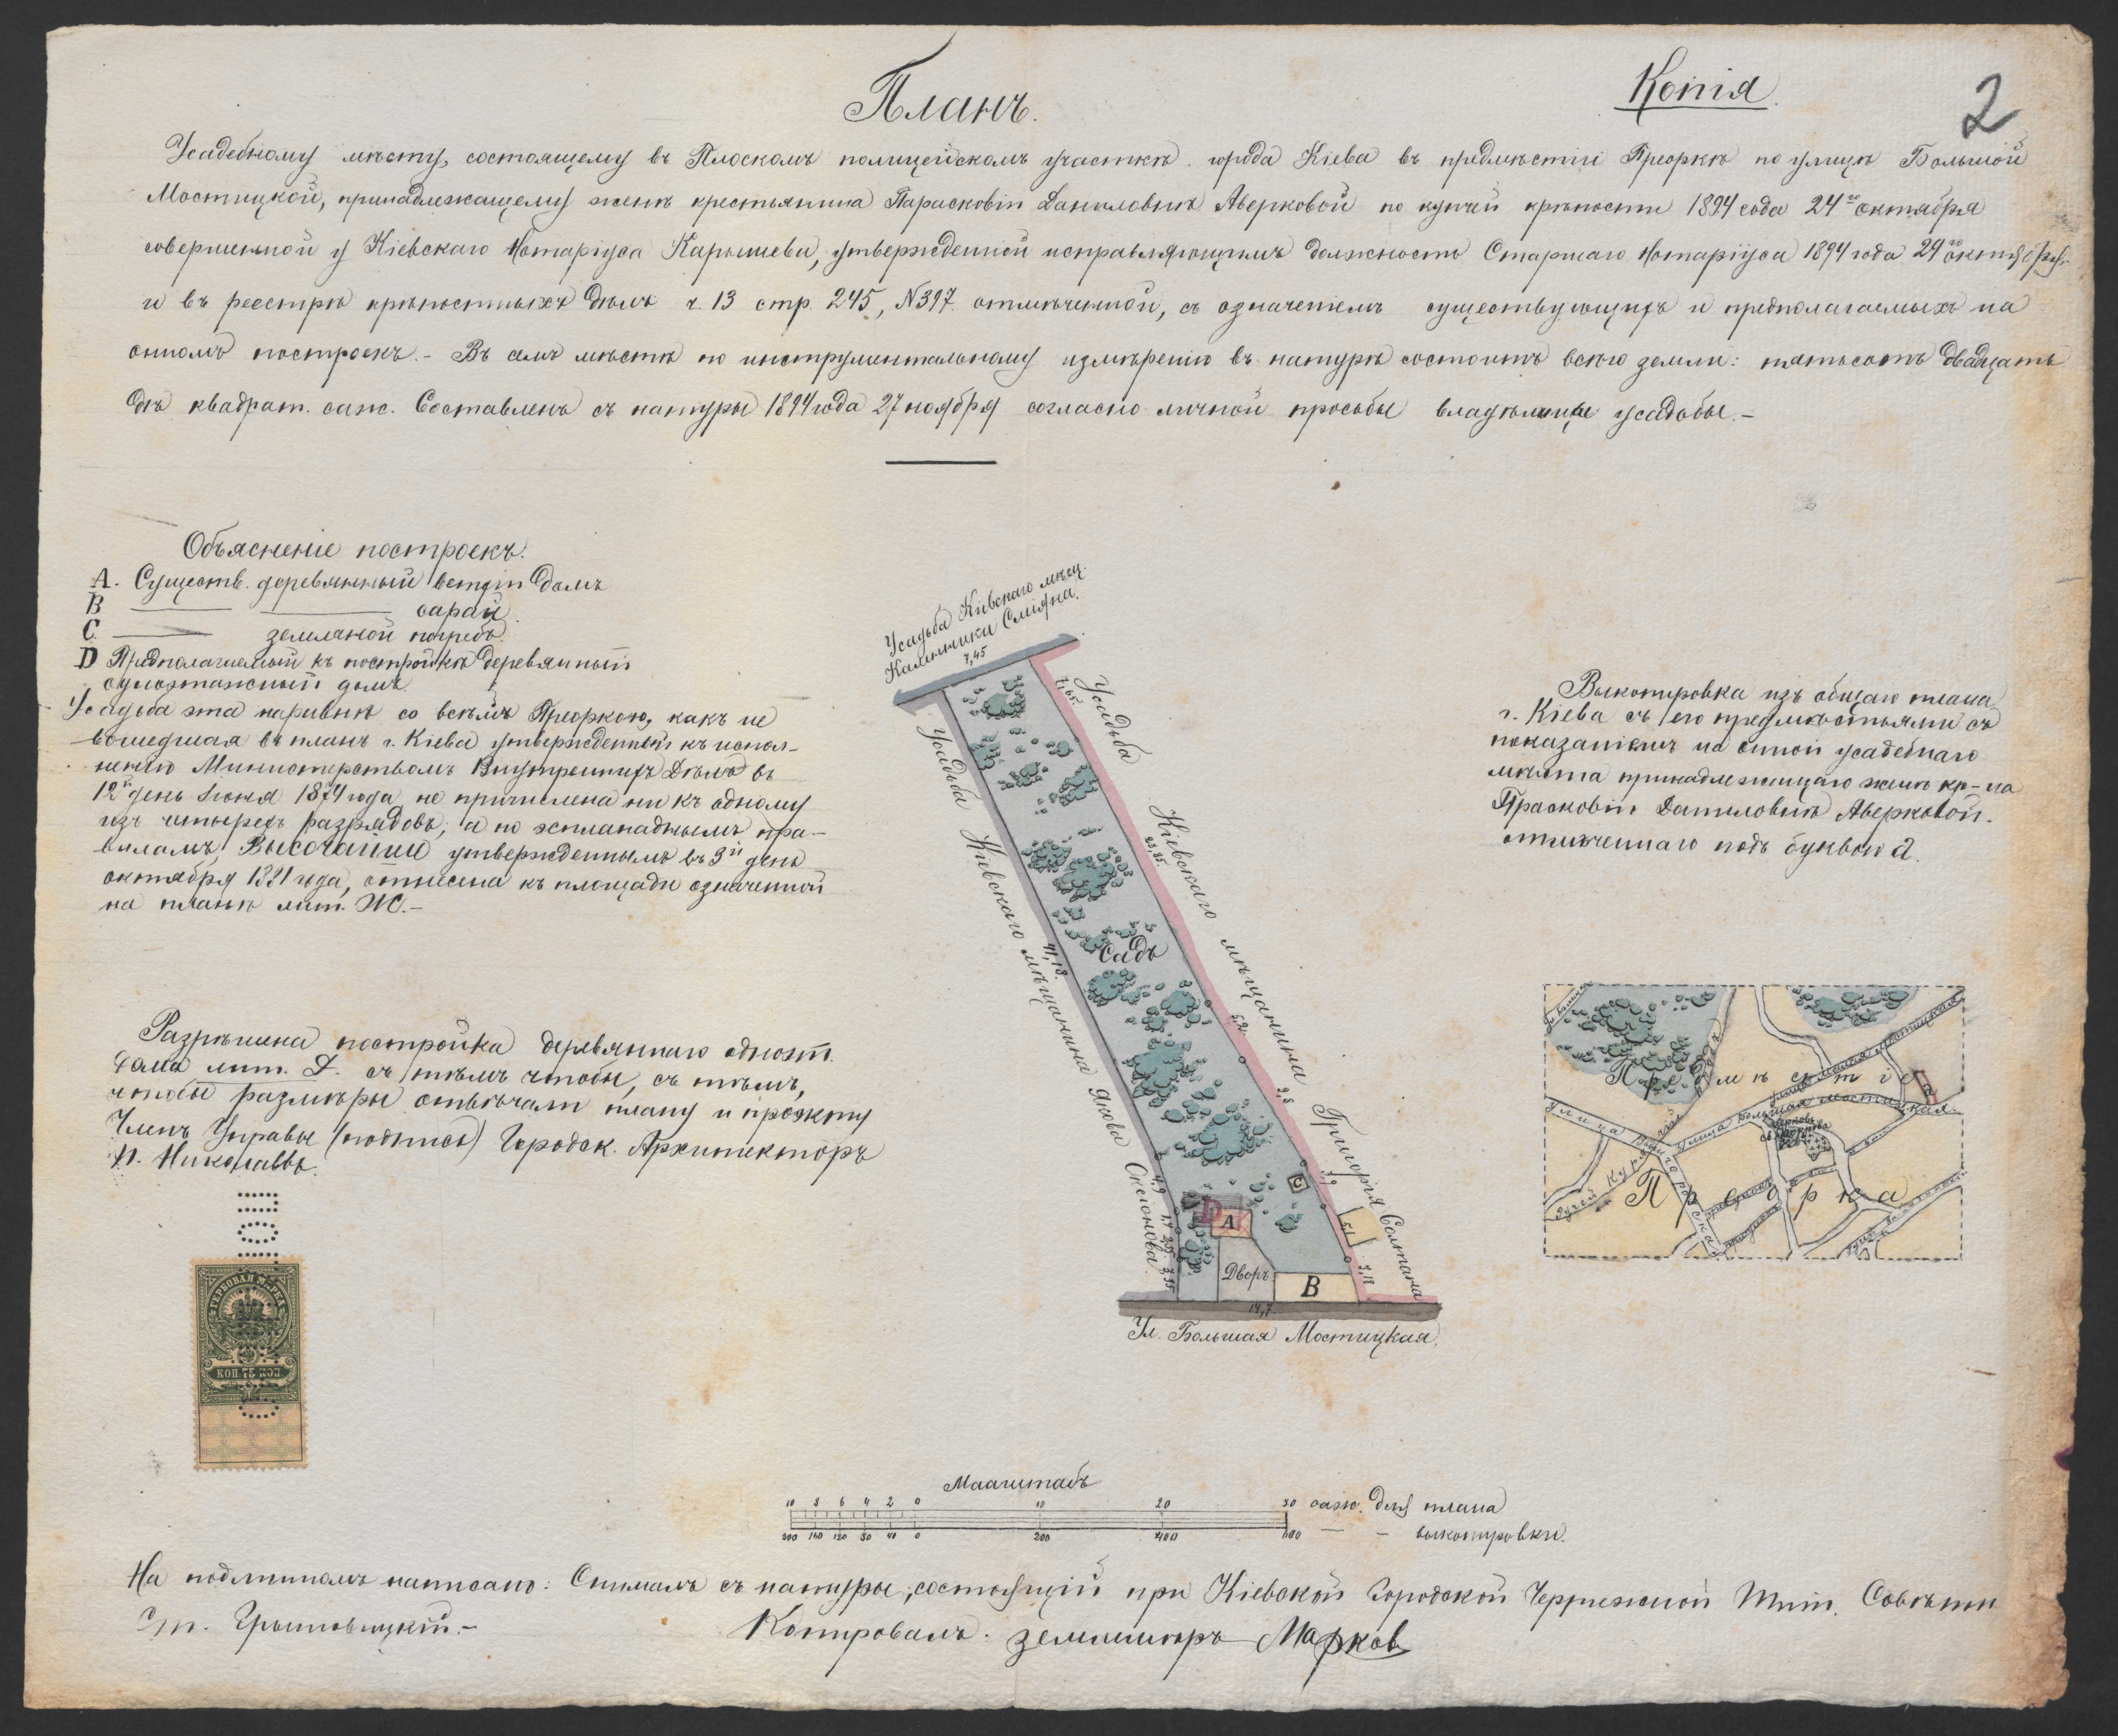 Планъ.
Копія
2
Усадебному мѣсту, состоящему въ Плоскомъ полицейскомъ участкѣ города Кіева въ предмѣстіи Преоркѣ по улицѣ Большой
Мостицкой, принадлежащему женѣ крестьянина Парасковіи Даниловнѣ Аверковой по купчей крѣпости 1894 года 24го октября
совершенной у Кіевскаго Нотаріуса Карышева, утвержденной исправляющимъ должность Старшаго Нотаріуса 1894 года 29го октября
и въ реестрѣ крѣпостныхъ дѣлъ ч. 13 стр. 245, № 397 отмѣченной, съ означеніемъ существующихъ и предполагаемыхъ на
ономъ построекъ. - Въ семъ мѣстѣ по инструментальному измѣренію въ натурѣ состоитъ всего земли: пятьсотъ двадцать
двѣ квадрат. саж. Составленъ съ натуры 1894 года 27 ноября согласно личной просьбы владѣлицы усадьбы. -
Объясненіе построекъ:
A. Существ. деревянный ветхій домъ
B сарай.
C земляной погребъ.
D Предполагаемый къ постройкѣ деревянный
одноэтажный домъ.
Усадьба эта наравнѣ со всѣмъ Преоркою, какъ не
вошедшая въ планъ г. Кіева утвержденный къ испол-
ненію Министерствомъ Внутреннихъ Дѣлъ въ
12й день Іюня 1874 года не причислена ни къ одному
изъ четырехъ разрядовъ, а по эспланаднымъ пра-
виламъ, Высочайше утвержденнымъ въ 3й день
октября 1881 года, отнесена къ площади означенной
на планѣ лит. Ж. -
Разрѣшена постройка деревяннаго одноэт.
дома лит. D. съ тѣмъ чтобы, съ тѣмъ,
чтобы размѣры отвѣчали плану и проэкту
Членъ Управы (подпись) Городск. Архитекторъ
Н. Николаевъ.
ГЕРБОВАЯ МАРКА
КОП. 75 КОП.
Усадьба Кіевскаго мѣщ.
Калинники Сміяна.
7,45
7,65
Усадьба Кіевскаго мѣщанина Григорія Солтана
Усадьба Кіевскаго мѣщанина Якова Оксюкова
41,13.
Садъ
5,2
2,8
4,9
C
D
A
5,1
Дворъ
B
2,18
14,7
Ул. Большая Мостицкая.
Выкопировка изъ общаго плана
г. Кіева съ его предмѣстьями съ
показаніемъ на оной усадебнаго
мѣста принадлежащаго женѣ кр-на
Прасковіи Даниловнѣ Аверковой.
отмѣченнаго подъ буквой а.
Предмѣстіе
а
улица Большая Мостицкая
улица Вышгородская
ручей Курячій
Церковь
Преорка
Масштабъ
10 8 6 4 2 0 10 20 30 саж. для плана
200 160 120 80 40 0 200 400 600 — - выкопировки.
На подлинномъ написано: Снималъ съ натуры, состоящій при Кіевской Городской Чертежной Тит. Совѣтн.
Копировалъ: землемѣръ Марков